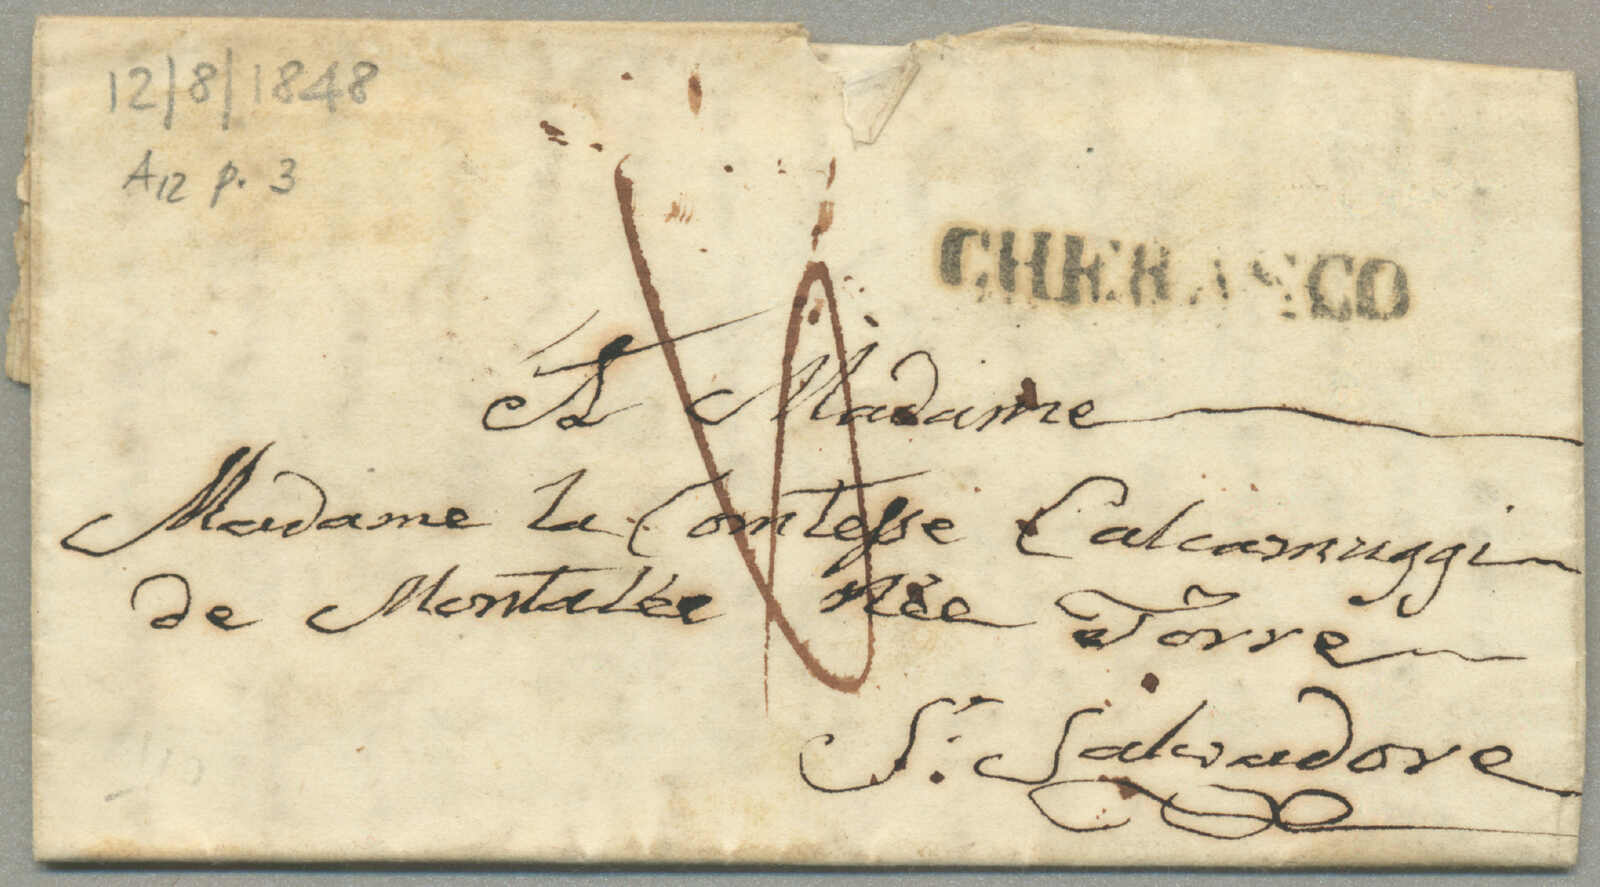 12/8/1848
A12 p. 3
CHERASCO
A Madame
Madame la Comtesse Calcamuggi
de Montalée Née Torre
St: Salvadore